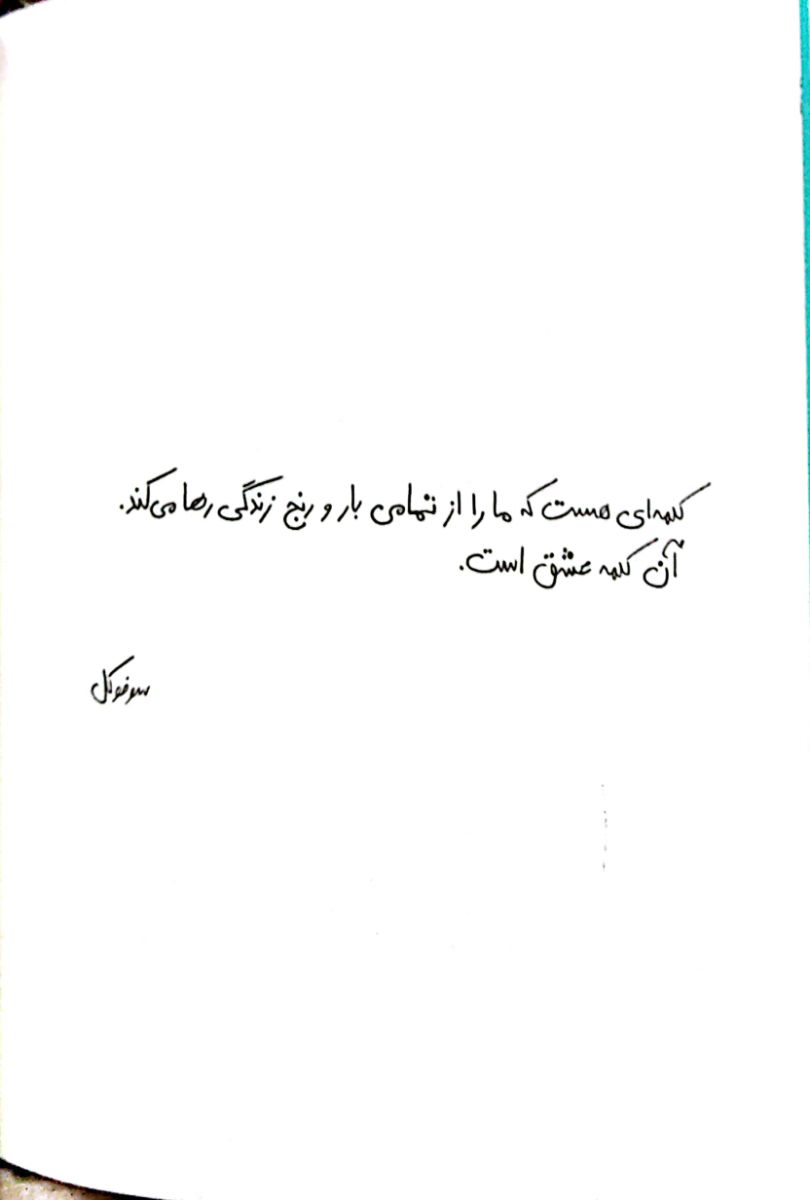 کلمه‌ای هست که ما را از تمامی بار و رنج زندگی رها می‌کند.
آن کلمه عشق است.
سوفوکل